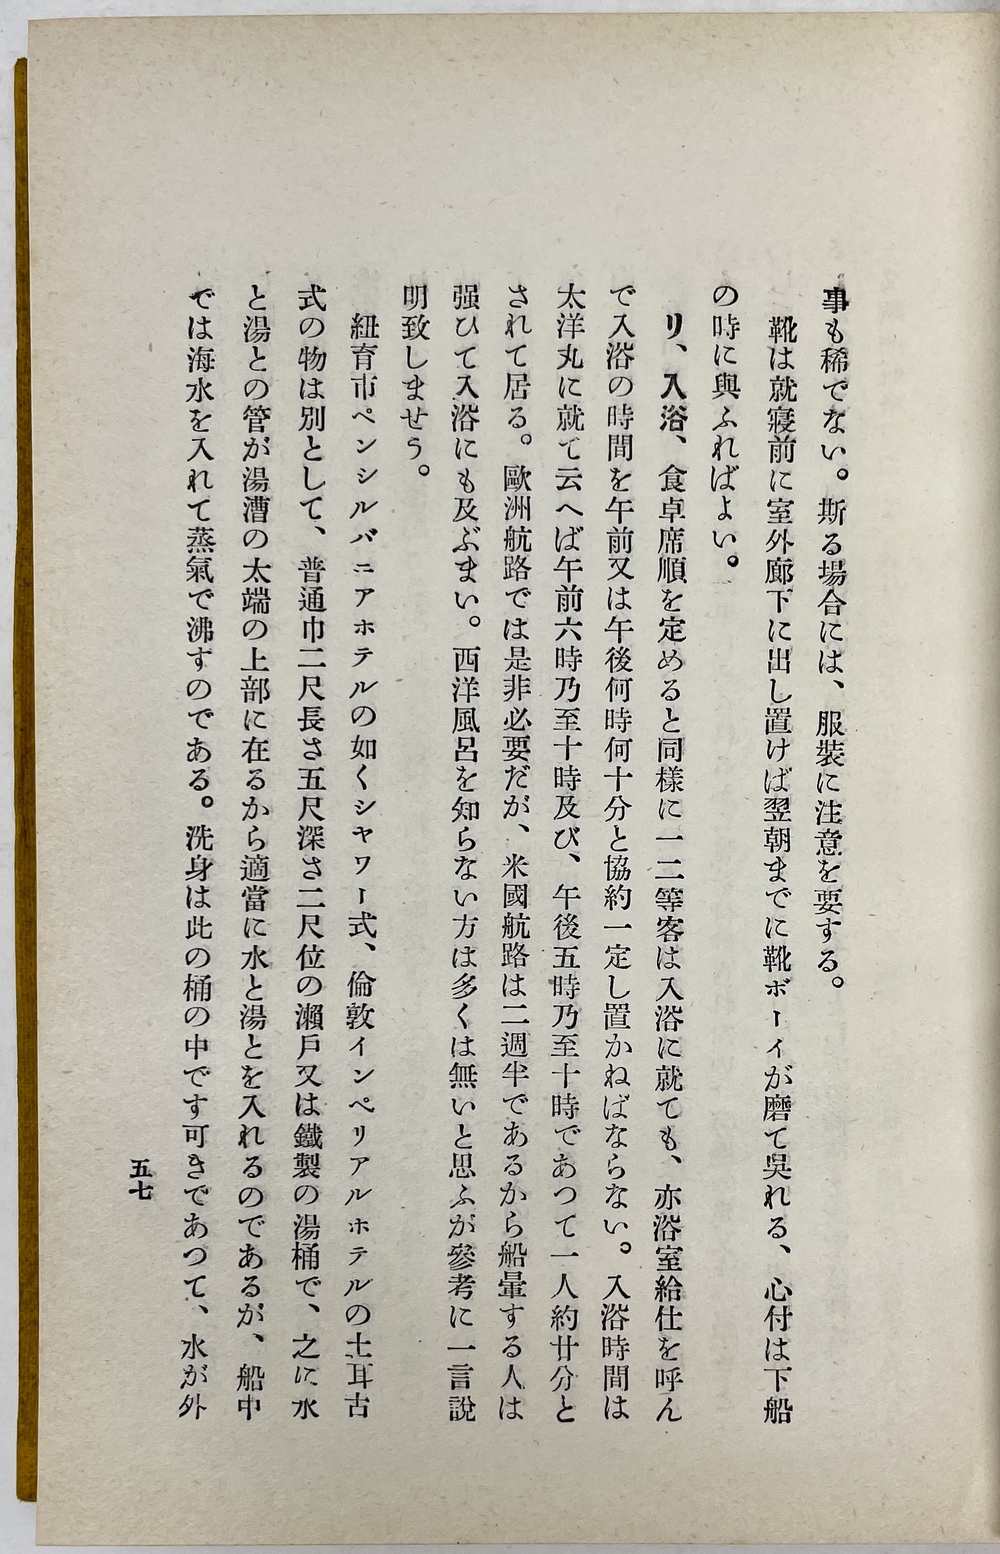 事も稀でない。斯る場合には、服裝に注意を要する。
靴は就寢前に室外廊下に出し置けば翌朝までに靴ボーイが磨て吳れる、心付は下船
の時に與ふればよい。
リ、入浴、食卓席順を定めると同様に一二等客は入浴に就ても、亦浴室給仕を呼ん
で入浴の時間を午前又は午後何時何十分と協約一定し置かねばならない。入浴時間は
太洋丸に就て云へば午前六時乃至十時及び、午後五時乃至十時であつて一人約廿分と
されて居る。歐洲航路では是非必要だが、米國航路は二週半であるから船暈する人は
强ひて入浴にも及ぶまい。西洋風呂を知らない方は多くは無いと思ふが參考に一言說
明致しませう。
紐育市ペンシルバニアホテルの如くシヤワー式、倫敦インペリアルホテルの土耳古
式の物は別として、普通巾二尺長さ五尺深さ二尺位の瀨戶又は鐵製の湯桶で、之に水
と湯との管が湯漕の太端の上部に在るから適當に水と湯とを入れるのであるが、船中
では海水を入れて蒸氣で沸すのである。洗身は此の桶の中です可きであつて、水が外
五七